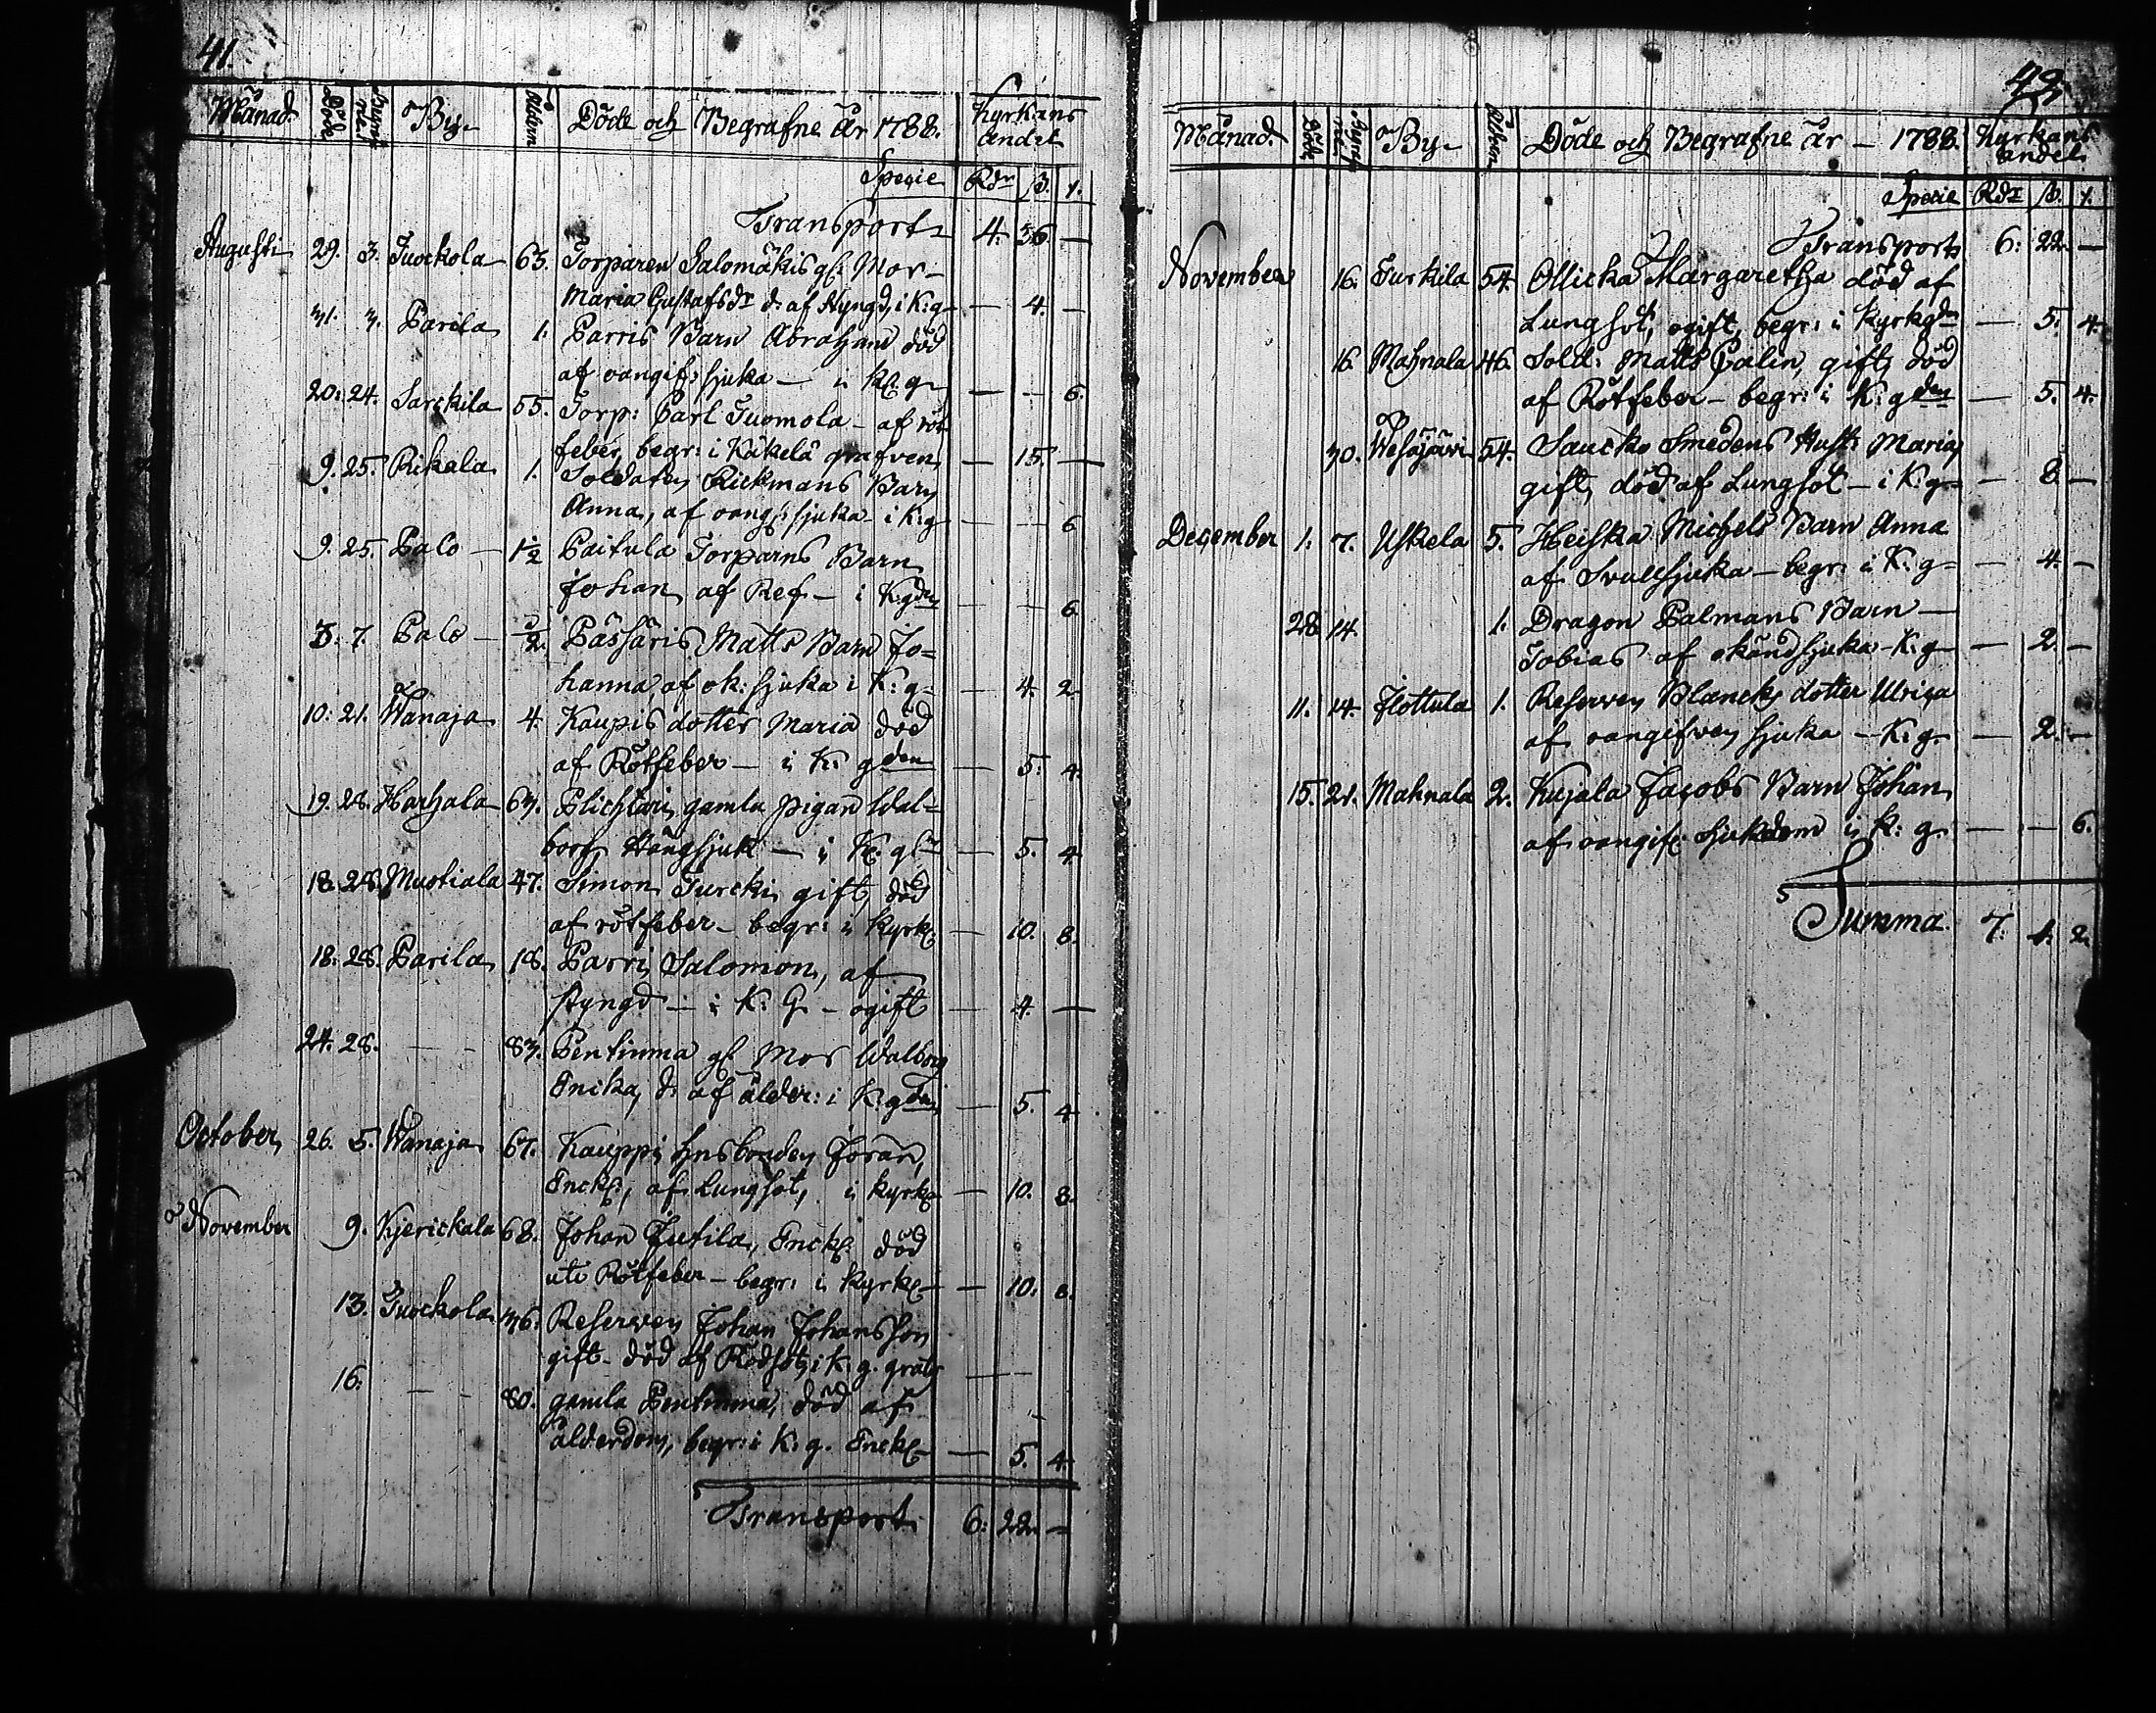 41.
Månad. Döde Begrafne By. Åldern Döde och Begrafne År 1788. Kyrkans andel
Specie Rdr ß. r.
Transport 4. 36 —
Augusti 29. 3. Tuockola 63. Torparen Salomäkis gl: Mor
Maria Gustafsdr d: af Styngd, i K:g — 4. —
31. 3. Parila 1. Parris Barn Abraham död
af oangif: sjuka — i K: g — — 6.
20: 24. Sarckila 55. Torp: Carl Tuomola — af röt
feber, begr: i Käkelä grafven — 15. —
9. 25. Rikala 1. Soldaten Rickmans Barn
Anna, af oang: sjuka — i K:g — — 6
9. 25. Palo — 1½ Paitula Torparns Barn
Johan af Ref — i K:gden — — 6
3: 7. Palo — ½. Pässäris Matts Barn Jo=
hanna af ok: sjuka i K: g — 4. 2
10: 21. Wanaja 4. Kaupis dotter Maria död
af Rötfeber — i K: gden — 5: 4.
19. 28. Harhala 63. Plichtari gamla pigan Wal=
borg Hängsjuk — i K: g — 5. 4
18. 28. Mustiala 47. Simon Turcki gift, död
af rötfeber — begr: i kyrk: — 10. 8.
18: 28. Parila 18. Parri Salomon, af
styngd — i K: G — ogift — 4. —
24. 28. — — 83. Pentinma gl: Mor Walborg
Encka, d: af ålder: i K:gden — 5. 4
October 26. 5. Wanaja 67. Kauppi husbonden Jöran,
Enckl:, af Lungsot, i kyrk: — 10. 8.
November 9. Kjerickala 68. Johan Jutila, Enckl: död
uti Rötfeber — begr: i kyrk: — 10: 8.
13. Tuockola 36. Reserven Johan Johansson
gift — död af Rödsot, i K: g. gratis — —
16: — — 80. gamla Pentinma, död af
ålderdom, begr: i K: g. Enckl: — 5. 4.
Transport 6: 22. —
42.
Månad. Döde Begrafne By. Åldern Döde och Begrafne År — 1788. Kyrkans andel.
Specie Rdr ß. r.
Transport 6: 22. —
November 16. Turkila 54. Ollicka Margaretha död af
Lungsot, ogift, begr: i Kyrkgdn — 5. 4.
16. Mahnala 46. Sold: Matts Palin, gift, död
af Rötfeber — begr: i K: gden — 5. 4.
30. Wesajärvi 54. Saucko Smedens Hust: Maria
gift, död af Lungsot — i K: g — 8. —
December 1. 7. Uskela 5. Heiska Michels Barn Anna
af Svullsjuka — begr: i K: g — 4. —
28. 14. 1. Dragon Palmans Barn —
Tobias af okänd sjuka — K: g — 2. —
11. 14. Flottula 1. Reserven Blancks dotter Ulrica
af oangifven sjuka — K: g. — 2. —
15. 21. Mahnala 2. Kujala Jacobs Barn Johan
af oangif: Sjukdom i k: g. — — 6.
Summa. 7: 1: 2.